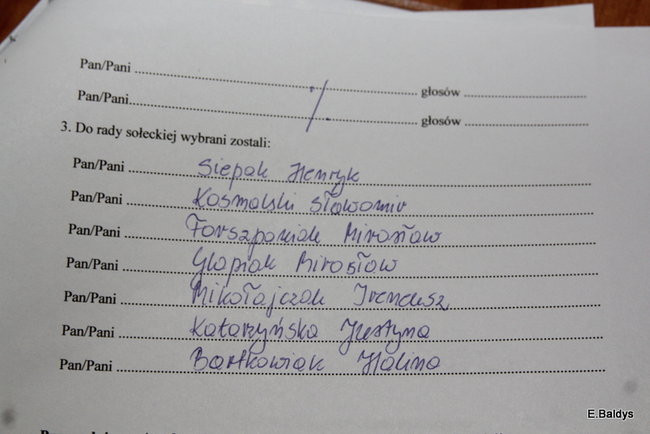 Pan/Pani ........................................ głosów ........................
Pan/Pani ........................................ głosów ........................
3. Do rady sołeckiej wybrani zostali:
Pan/Pani Siepak Henryk
Pan/Pani Kosmalski Sławomir
Pan/Pani Forszpaniak Mirosław
Pan/Pani Glapiak Mirosław
Pan/Pani Mikołajczak Ireneusz
Pan/Pani Katarzyńska Justyna
Pan/Pani Bartkowiak Halina
E.Baldys